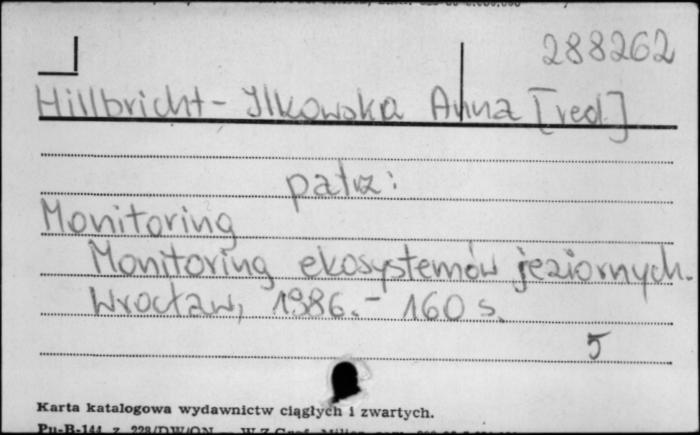 288262
Hillbricht-Ilkowska Anna [red.]
patrz:
Monitoring
Monitoring ekosystemów jeziornych.
Wrocław, 1986.- 160 s.
5
Karta katalogowa wydawnictw ciągłych i zwartych.
Pu-B-144 z. 228/DW/ON